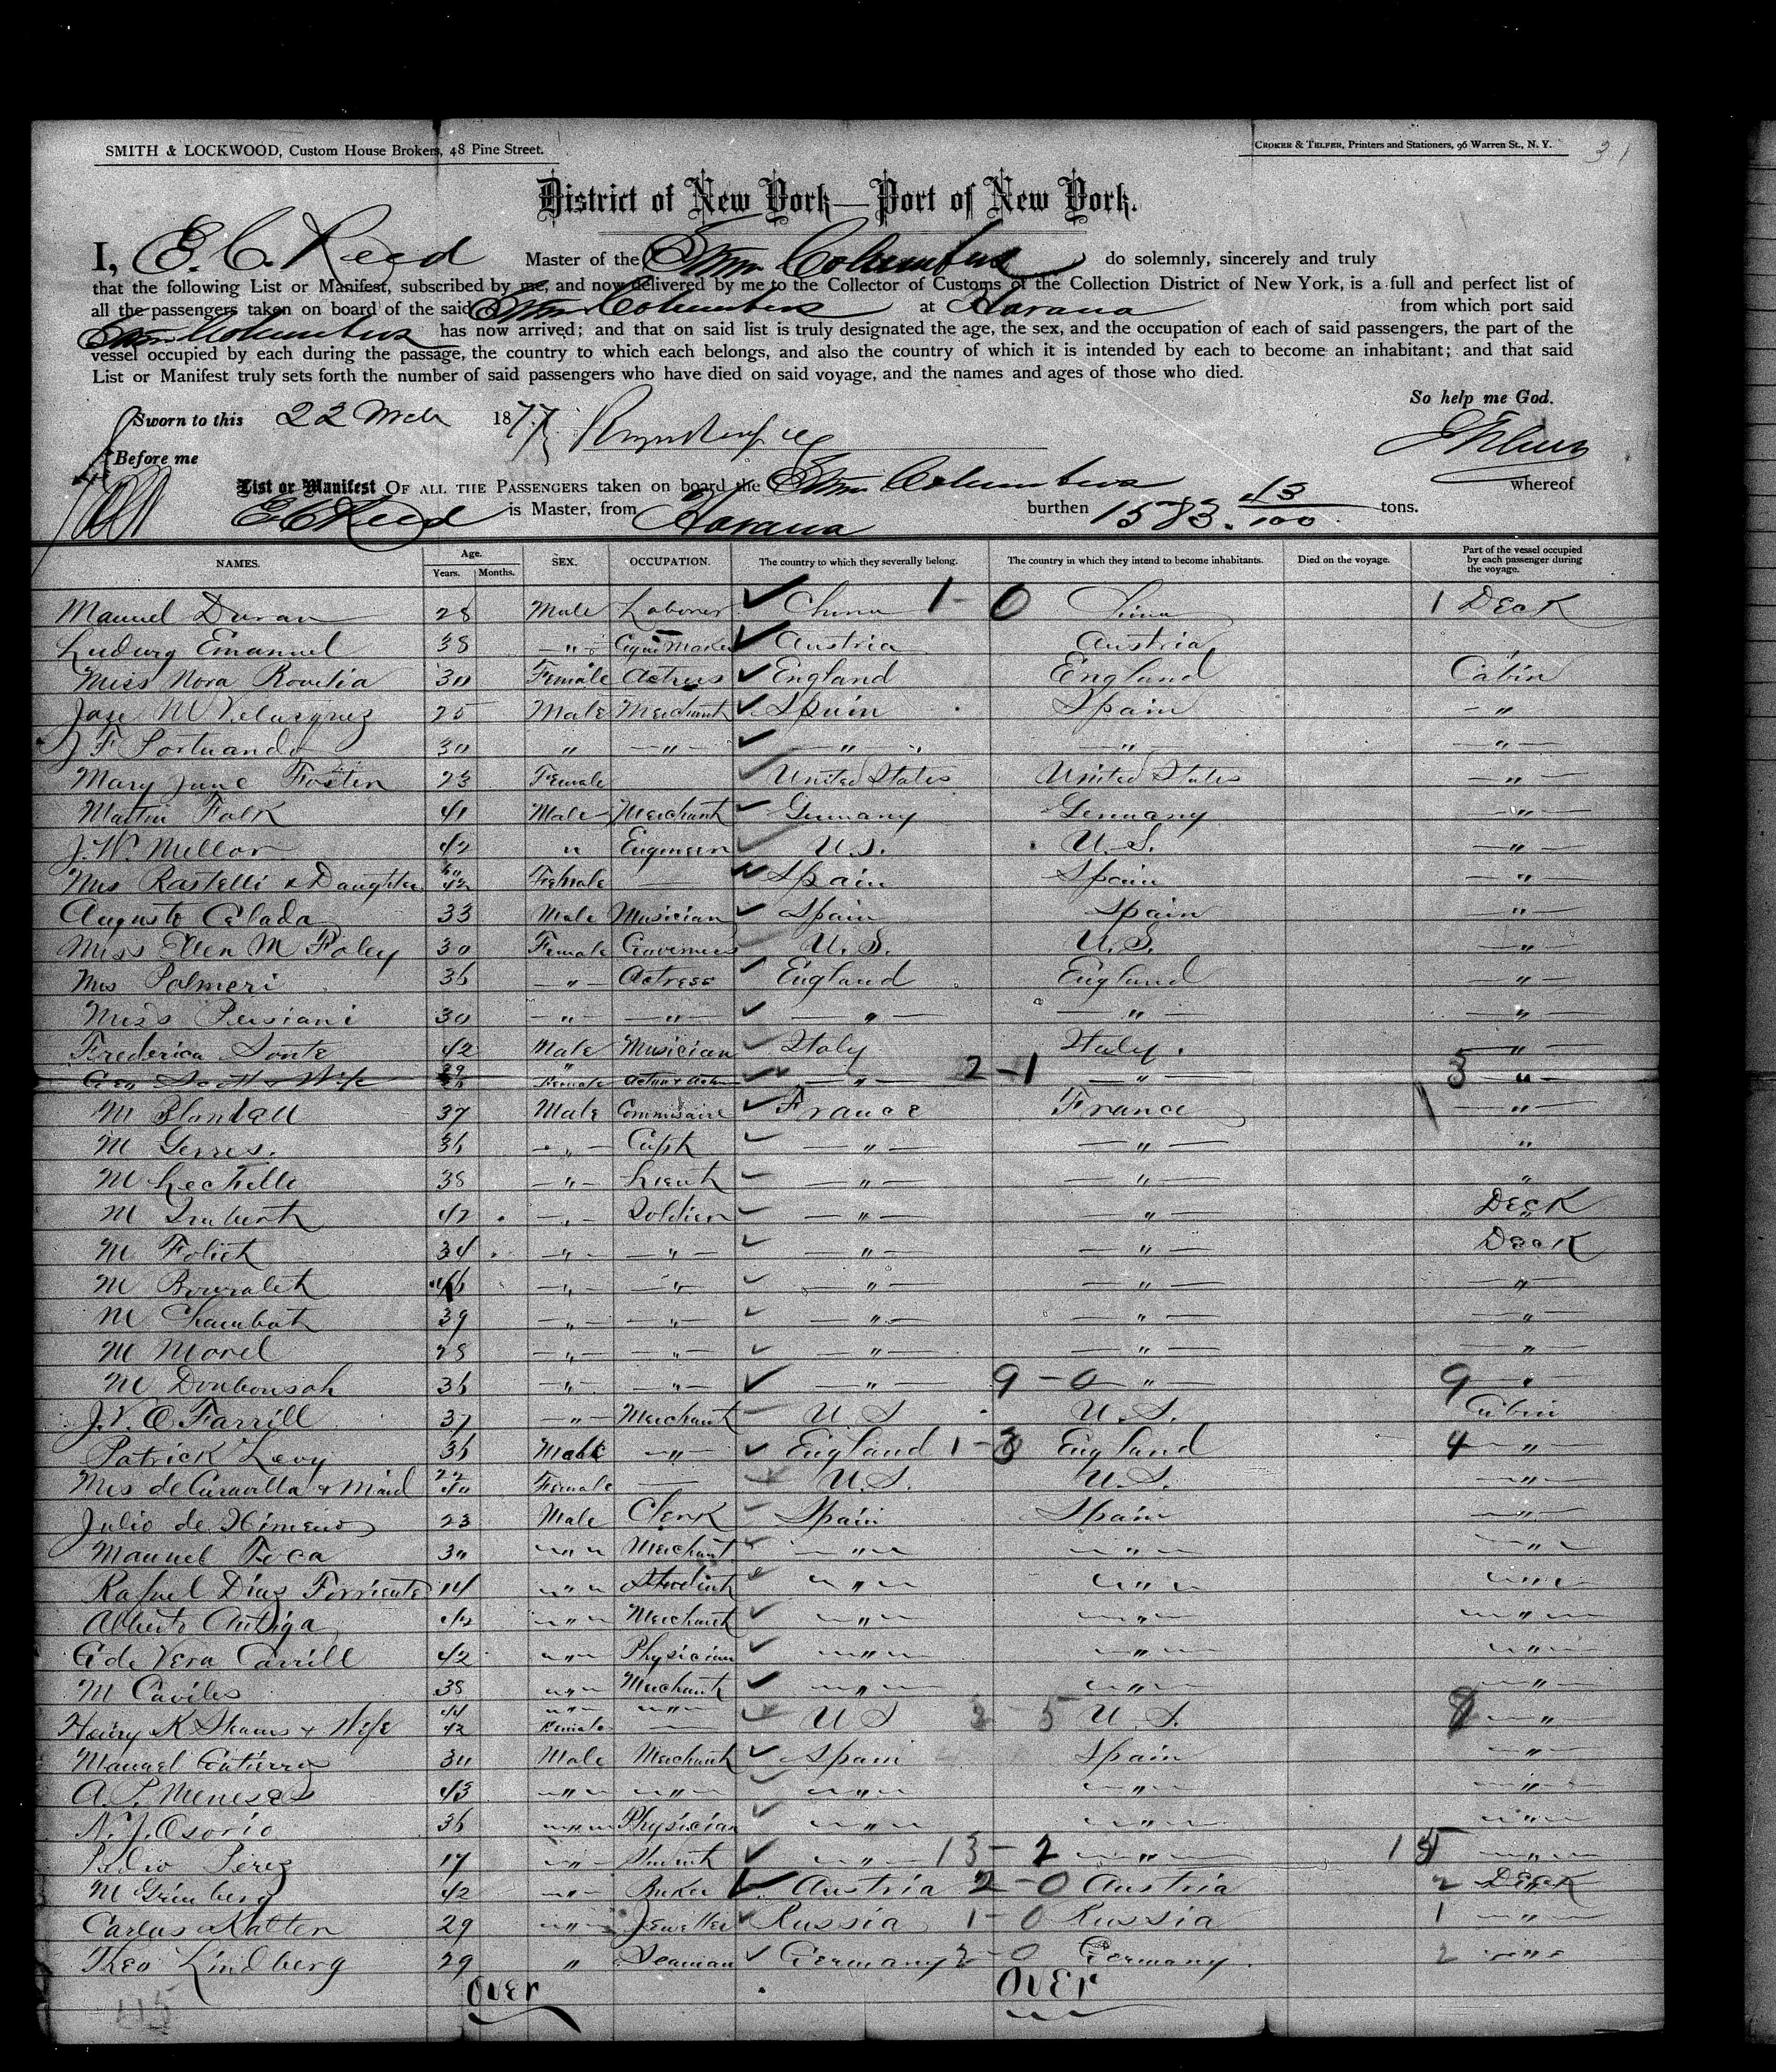 SMITH & LOCKWOOD, Custom House Brokers, 48 Pine Street.
CROKER & TELFER, Printers and Stationers, 96 Warren St., N. Y.
31
District of New York—Port of New York.
I, E. C. Reed Master of the Stmr Columbus do solemnly, sincerely and truly
that the following List or Manifest, subscribed by me, and now delivered by me to the Collector of Customs of the Collection District of New York, is a full and perfect list of
all the passengers taken on board of the said Stmr Columbus at Havana from which port said
Stmr Columbus has now arrived; and that on said list is truly designated the age, the sex, and the occupation of each of said passengers, the part of the
vessel occupied by each during the passage, the country to which each belongs, and also the country of which it is intended by each to become an inhabitant; and that said
List or Manifest truly sets forth the number of said passengers who have died on said voyage, and the names and ages of those who died.
So help me God.
Sworn to this 22 Mch 1877
Before me
List or Manifest OF ALL THE PASSENGERS taken on board the Stmr Columbus whereof
E C Reed is Master, from Havana burthen 1583. 43/100 tons.
NAMES. Age. Years. Months. SEX. OCCUPATION. The country to which they severally belong. The country in which they intend to become inhabitants. Died on the voyage. Part of the vessel occupied by each passenger during the voyage.
Manuel Duran 28 Male Laborer China 1 - 0 1 Deck
Ludwig Emanuel 38 " Cigar Maker Austria Austria "
Miss Nora Rovelia 30 Female Actress England England Cabin
Jose M Velazquez 25 Male Merchant Spain Spain "
J F Portuando 30 " " " " "
Mary Jane Foster 23 Female United States United States "
Martin Falk 41 Male Merchant Germany Germany "
J. W. Mellor 42 " Engineer U.S. U.S. "
Mrs Rastelli & Daughter 42 Female — Spain Spain "
Augusto Celada 33 Male Musician Spain Spain "
Miss Ellen M Foley 30 Female Governess U.S. U.S. "
Mrs Palmeri 36 " Actress England England "
Miss Persiani 30 " " " " "
Frederica Sonte 42 Male Musician Italy Italy "
Geo Scott & Wife 29 " Female Actor & " 2 - 1 " 3 "
M Blondell 37 Male Commissaire France France 1 "
M Gerres. 36 " Capt " " "
M Lechelle 38 " Lieut " " "
M Imbert 42 " Soldier " " Deck
M Foliet 34 " " " " Deck
M 46 " " " " "
M Chambat 39 " " " " "
M Morel 28 " " " " "
M 36 " " " 9 - 0 " 9 "
J. V. O Farrill 37 " Merchant U S U.S. Cabin
Patrick Levy 36 Male " England 1 - 3 England 4 "
Mrs de & Maid 22 40 Female — U.S. U.S. "
Julio de Ximeno 23 Male Clerk Spain Spain "
Manuel Toca 30 " Merchant " " "
Rafael Diaz Torriente 14 " Student " " "
Alberto Antiga 42 " Merchant " " "
G de Vera Carrill 42 " Physician " " "
M Caviles 38 " Merchant " " "
Henry K & Wife 44 42 " Female " — U S 3 - 5 U.S. 8 "
Manuel Gutierrez 30 Male Merchant Spain Spain "
A. P. Meneses 43 " " " " "
N. J. Osorio 36 " Physician " " "
Pedro Perez 17 " Student " 13 - 2 " 15 "
M Grimberg 42 " Baker Austria 2 - 0 Austria 2 Deck
Carlus Katten 29 " Jeweller Russia 1 - 0 Russia 1 "
Theo Lindberg 29 " Seaman Germany 2 - 0 Germany 2 "
Over Over